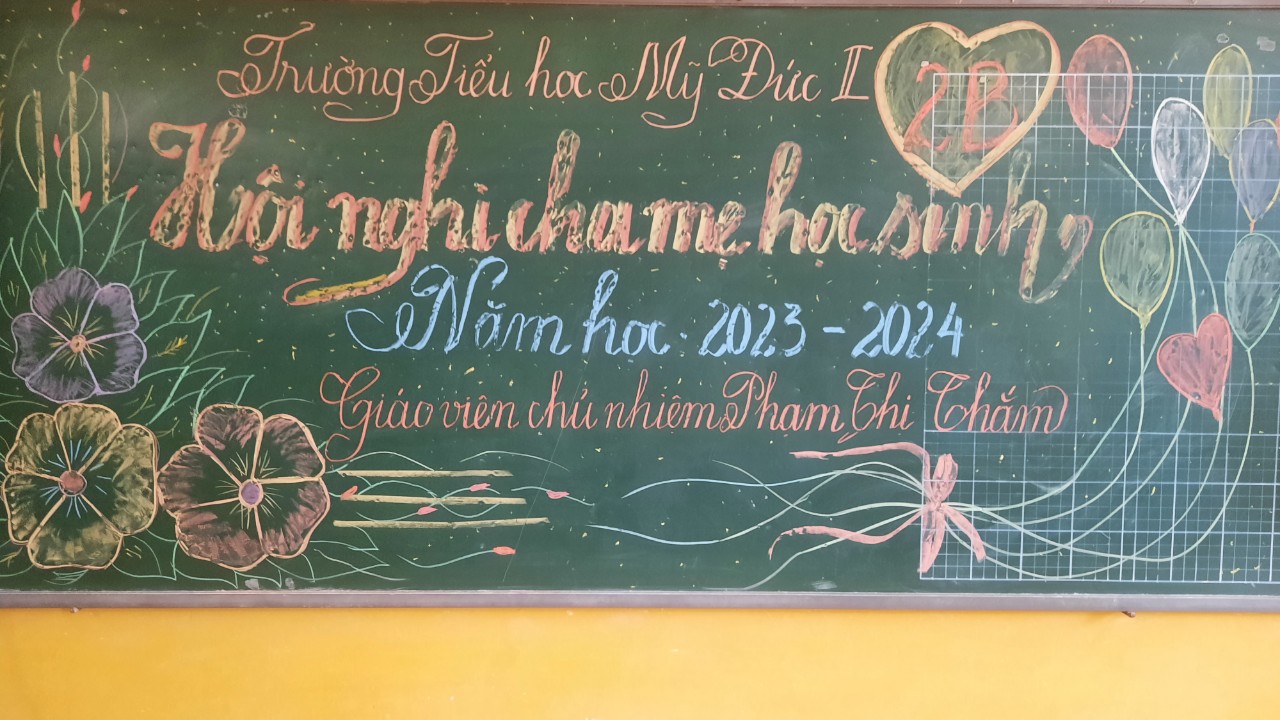 Trường Tiểu học Mỹ Đức II
2B
Hội nghị cha mẹ học sinh
Năm học. 2023 - 2024
Giáo viên chủ nhiệm Phạm Thị Thắm